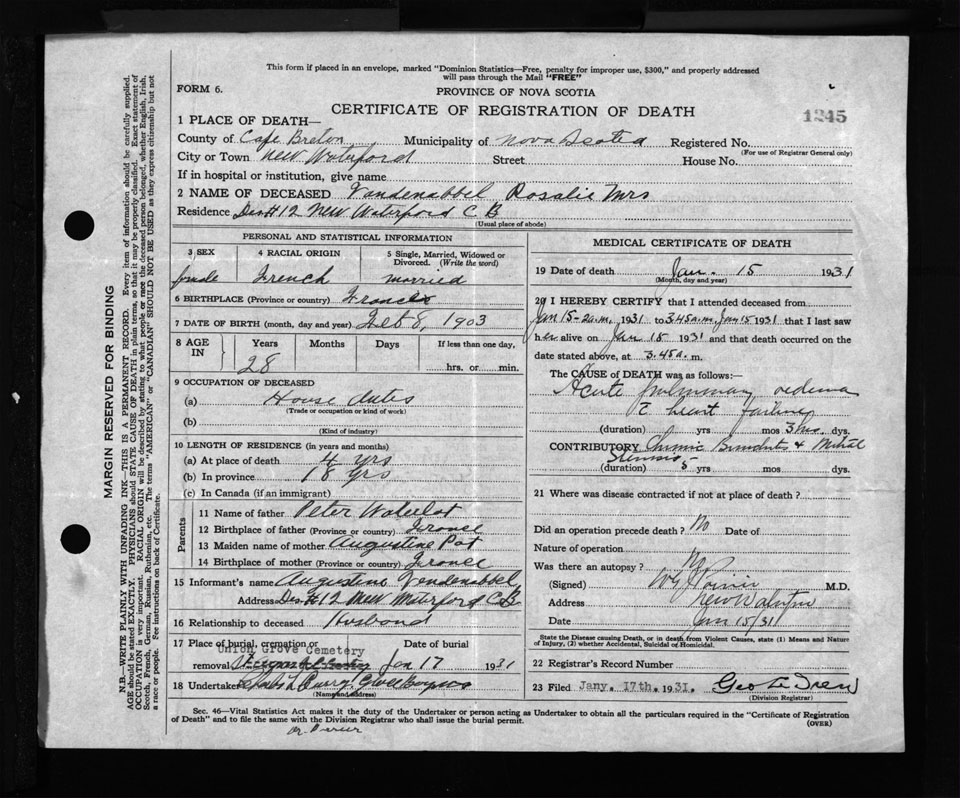 This form if placed in an envelope, marked "Dominion Statistics—Free, penalty for improper use, $300," and properly addressed
will pass through the Mail "FREE"
FORM 6.
PROVINCE OF NOVA SCOTIA
CERTIFICATE OF REGISTRATION OF DEATH
1245
1 PLACE OF DEATH—
County of Cape Breton Municipality of Nova Scotia Registered No.
(For use of Registrar General only)
City or Town New Waterford Street House No.
If in hospital or institution, give name
2 NAME OF DECEASED Vandenabbel Rosalie Mrs
Residence #12 New Waterford C B
(Usual place of abode)
PERSONAL AND STATISTICAL INFORMATION
3 SEX 4 RACIAL ORIGIN 5 Single, Married, Widowed or Divorced. (Write the word)
female French married
6 BIRTHPLACE (Province or country) France
7 DATE OF BIRTH (month, day and year) Feb 8, 1903
8 AGE IN Years Months Days If less than one day,
28 hrs. or min.
9 OCCUPATION OF DECEASED
(a) House duties
(Trade or occupation or kind of work)
(b)
(Kind of industry)
10 LENGTH OF RESIDENCE (in years and months)
(a) At place of death 4 yrs
(b) In province 18 yrs
(c) In Canada (if an immigrant)
Parents
11 Name of father Peter
12 Birthplace of father (Province or country) France
13 Maiden name of mother Augustine Pot
14 Birthplace of mother (Province or country) France
15 Informant's name Augustino Vandenabbel
Address #12 New Waterford C B
16 Relationship to deceased Husband
17 Place of burial, cremation or removal Date of burial
Union Grove Cemetery
Jan 17 1931
18 Undertaker
(Name and address)
MEDICAL CERTIFICATE OF DEATH
19 Date of death Jan. 15 1931
(Month, day and year)
20 I HEREBY CERTIFY that I attended deceased from
Jan 15-2 a.m. 1931 to 3.45 a.m. Jan 15 1931 that I last saw
her alive on Jan 15 1931 and that death occurred on the
date stated above, at 3.45 a. m.
The CAUSE of DEATH was as follows:—
Acute pulmonary oedema
c heart failure
(duration) yrs mos 3 hrs. dys.
CONTRIBUTORY Chronic Bronchitis & Mitral
Stenosis
(duration) 5 yrs mos. dys.
21 Where was disease contracted if not at place of death?
Did an operation precede death? No Date of
Nature of operation
Was there an autopsy? No
(Signed) M.D.
Address New Waterford
Date Jan 15/31
State the Disease causing Death, or in death from Violent Causes, state (1) Means and Nature
of Injury, (2) whether Accidental, Suicidal or Homicidal.
22 Registrar's Record Number
23 Filed Jany. 17th. 1931. Geo
(Division Registrar)
Sec. 46—Vital Statistics Act makes it the duty of the Undertaker or person acting as Undertaker to obtain all the particulars required in the "Certificate of Registration
of Death" and to file the same with the Division Registrar who shall issue the burial permit.
(OVER)
MARGIN RESERVED FOR BINDING
N.B.—WRITE PLAINLY WITH UNFADING INK—THIS IS A PERMANENT RECORD. Every item of information should be carefully supplied.
AGE should be stated EXACTLY. PHYSICIANS should STATE CAUSE OF DEATH in plain terms, so that it may be properly classified. Exact statement of
OCCUPATION is very important. RACIAL ORIGIN will be described by stating to what people or race the deceased person belonged, whether English, Irish,
Scotch, French, German, Russian, Ruthenian, etc. The terms "AMERICAN" or "CANADIAN" SHOULD NOT BE USED as they express citizenship but not
a race or people. See instructions on back of Certificate.